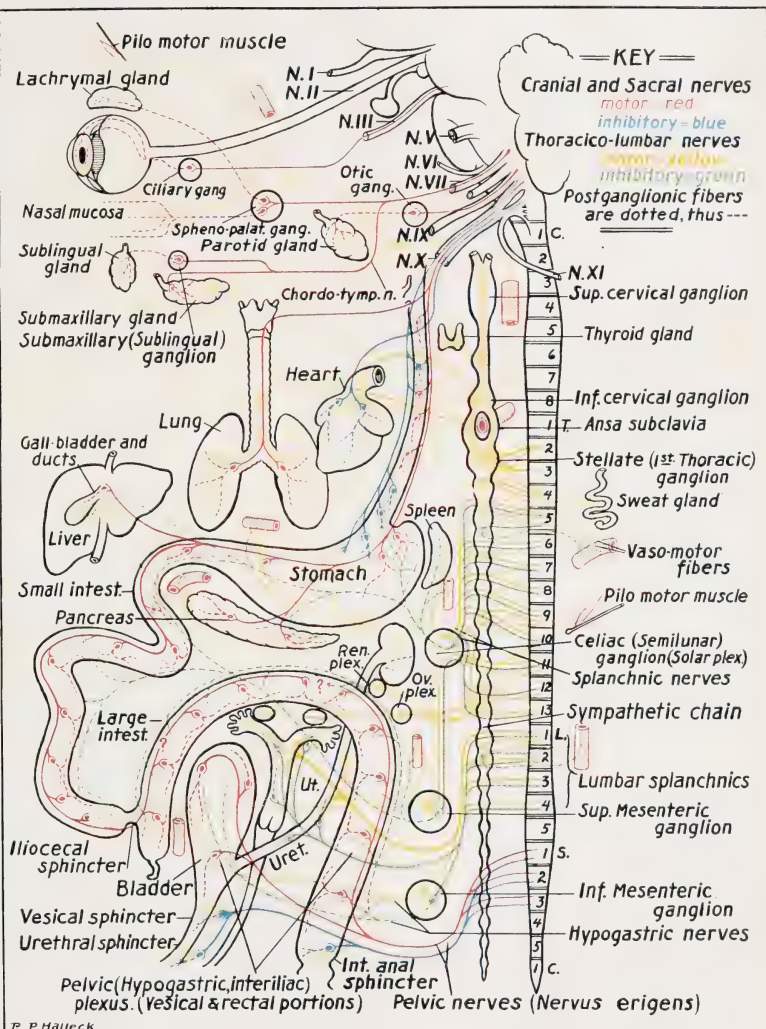 Pilo motor muscle
Lachrymal gland
N.I
N.II
N.III
N.V
N.VI
N.VII
N.IX
N.X
Ciliary gang
Otic
gang.
Nasal mucosa
Spheno-palat. gang.
Parotid gland
Sublingual
gland
Chordo-tymp. n.
Submaxillary gland
Submaxillary (Sublingual)
ganglion
Heart
Lung
Gall-bladder and
ducts
Liver
Spleen
Stomach
Small intest.
Pancreas
Ren.
plex.
Ov.
plex.
Large
intest.
?
?
Ut.
Uret.
Iliocecal
sphincter
Bladder
Vesical sphincter
Urethral sphincter
Int. anal
sphincter
Pelvic (Hypogastric, interiliac)
plexus. (Vesical & rectal portions)
Pelvic nerves (Nervus erigens)
KEY
Cranial and Sacral nerves
motor = red
inhibitory = blue
Thoracico-lumbar nerves
motor = yellow
inhibitory = green
Postganglionic fibers
are dotted, thus ---
1 C.
2
3
4
5
6
7
8
1 T.
2
3
4
5
6
7
8
9
10
11
12
13
1 L.
2
3
4
5
1 S.
2
3
4
5
1 C.
N.XI
Sup. cervical ganglion
Thyroid gland
Inf. cervical ganglion
Ansa subclavia
Stellate (1st. Thoracic)
ganglion
Sweat gland
Vaso-motor
fibers
Pilo motor muscle
Celiac (Semilunar)
ganglion (Solar plex)
Splanchnic nerves
Sympathetic chain
Lumbar splanchnics
Sup. Mesenteric
ganglion
Inf. Mesenteric
ganglion
Hypogastric nerves